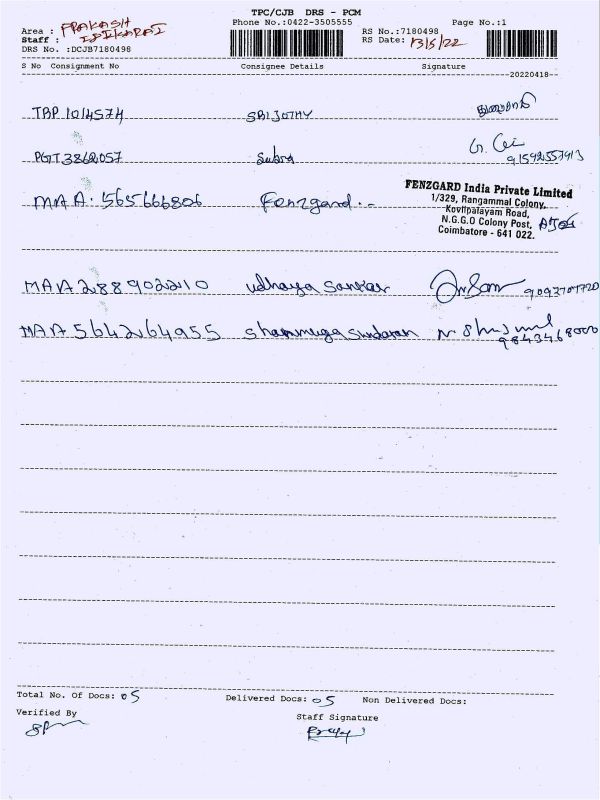 TPC/CJB DRS - PCM
Phone No.:0422-3505555 Page No.:1
Area : PRAKASH
Staff : IDIKARAI
RS No.:7180498
RS Date: 13/5/22
DRS No. :DCJB7180498
S No Consignment No Consignee Details Signature
20220418
TBP 1014574 SRIJOTHY
PGT 3862057 Subra G. 91592557913
MAA. 565666806 Fenzgard.--
FENZGARD India Private Limited
1/329, Rangammal Colony,
Kovilpalayam Road,
N.G.G.O Colony Post,
Coimbatore - 641 022.
MAA 288902210 Udhaya Sankar 9093707720
MAA 5642264955 Shanmuga Sundaran 9843468000
Total No. Of Docs: 05 Delivered Docs: 05 Non Delivered Docs:
Verified By
Staff Signature